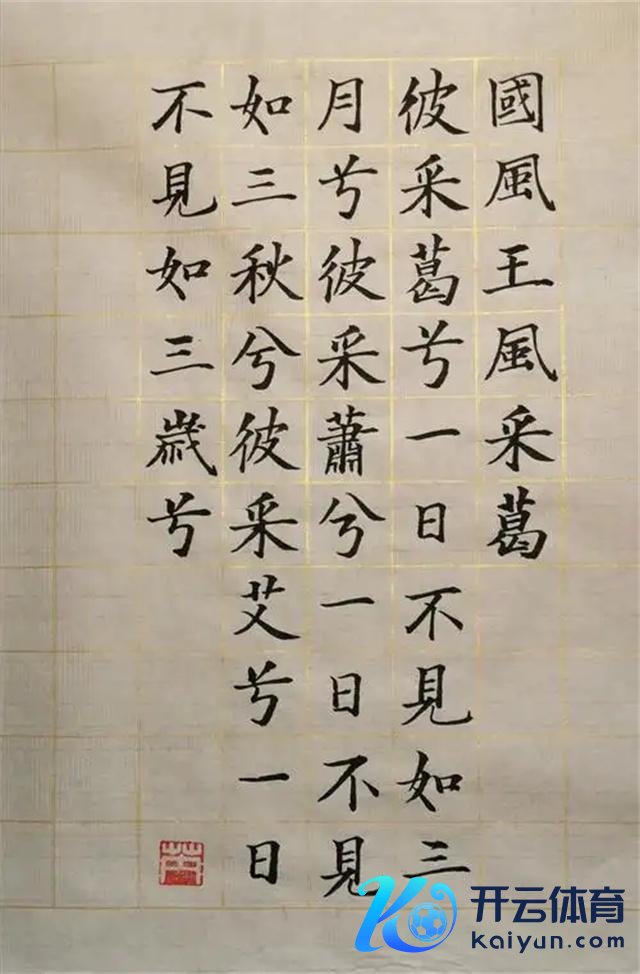 國風王風采葛
彼采葛兮一日不見如三
月兮彼采蕭兮一日不見
如三秋兮彼采艾兮一日
不見如三歲兮
开云体育
kaiyun.com